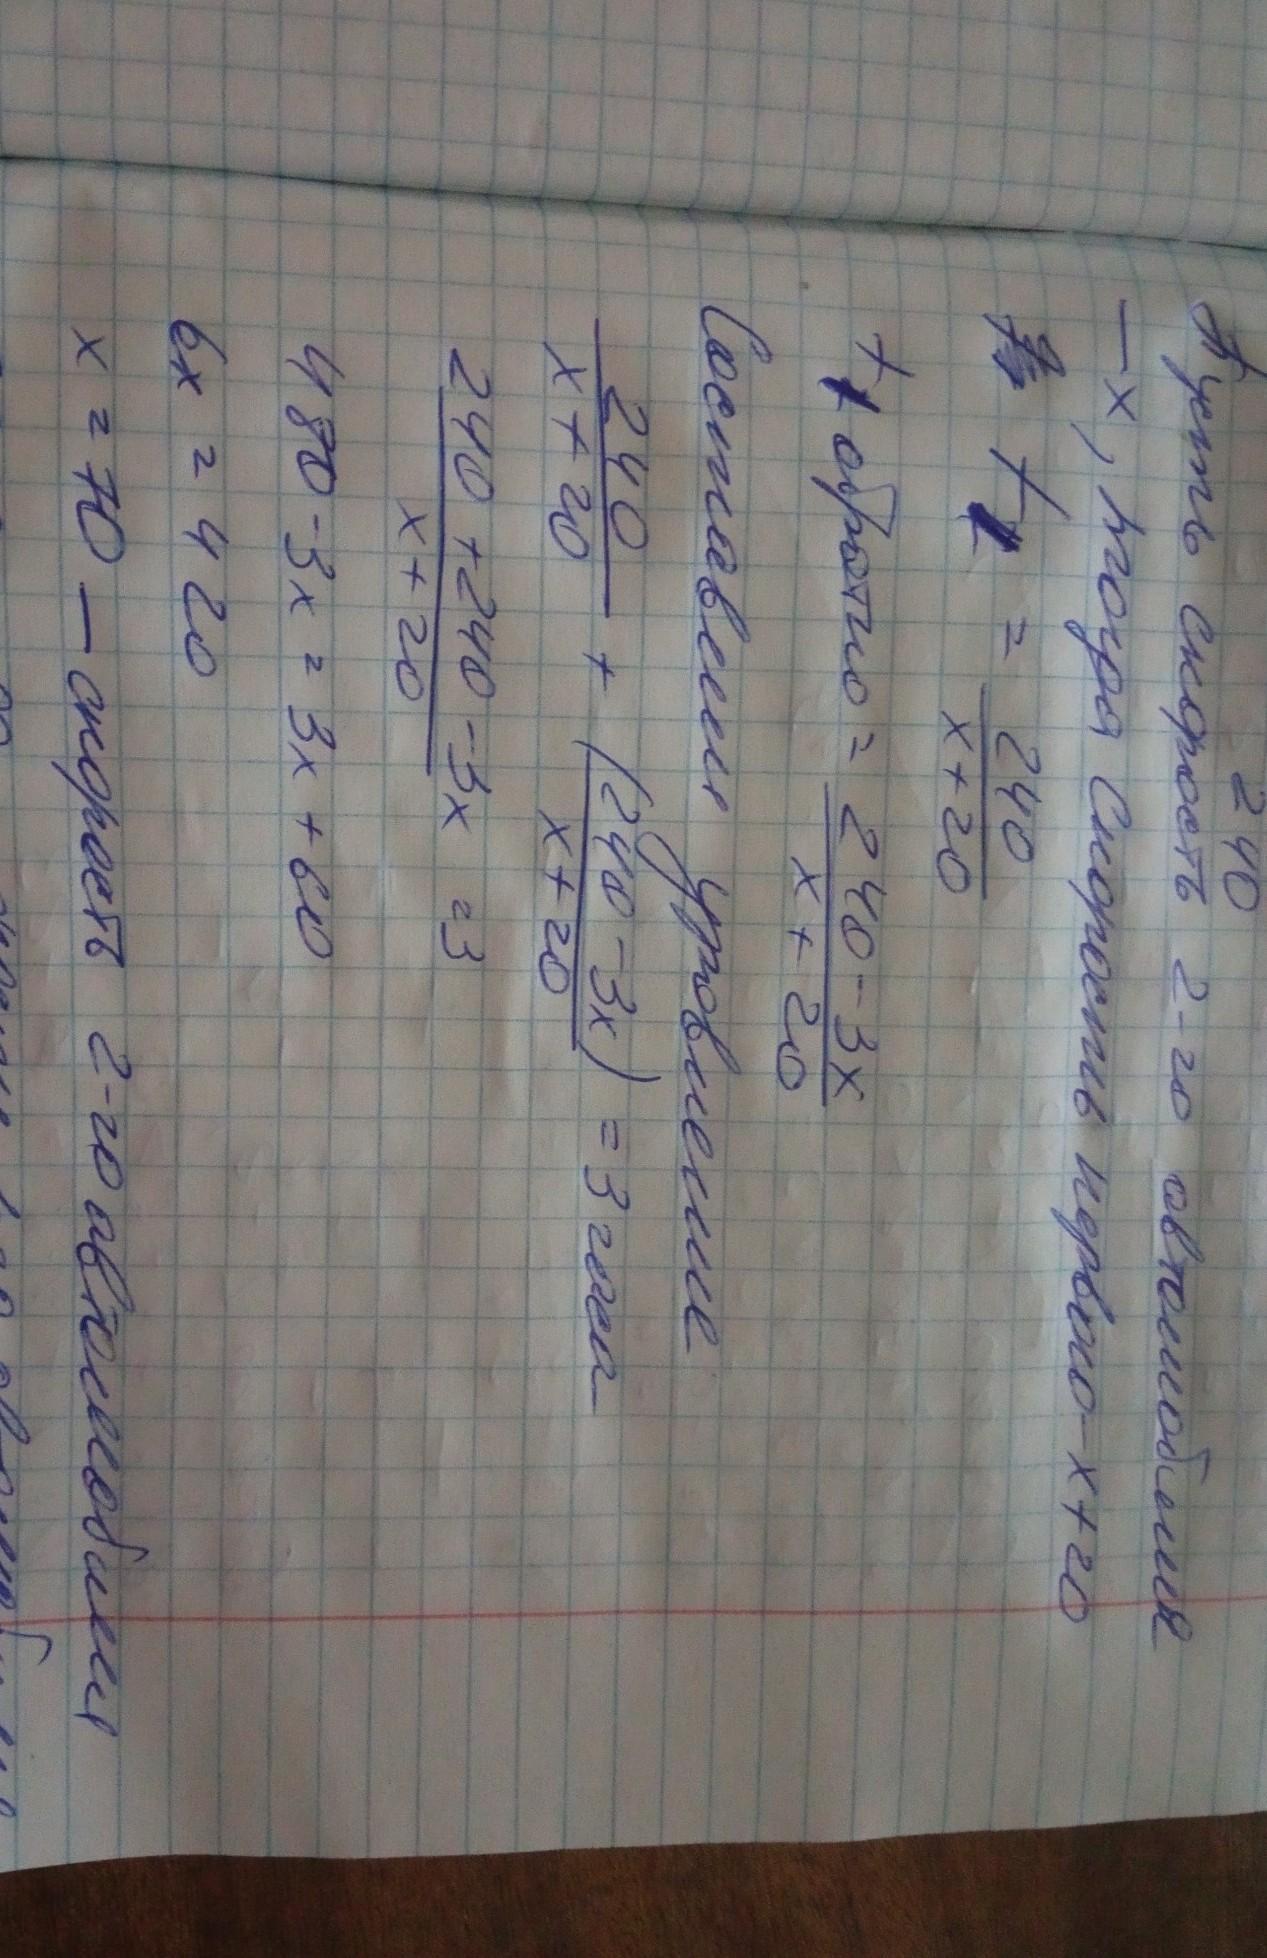 240
Пусть скорость 2-го автомобиля
— x, тогда скорость первого - x+20
t₁ = 240/(x+20)
t₁ обратно = (240-3x)/(x+20)
Составляем уровнение
240/(x+20) + (240-3x)/(x+20) = 3 часа
(240+240-3x)/(x+20) = 3
480-3x = 3x+60
6x = 420
x = 70 — скорость 2-го автомобиля